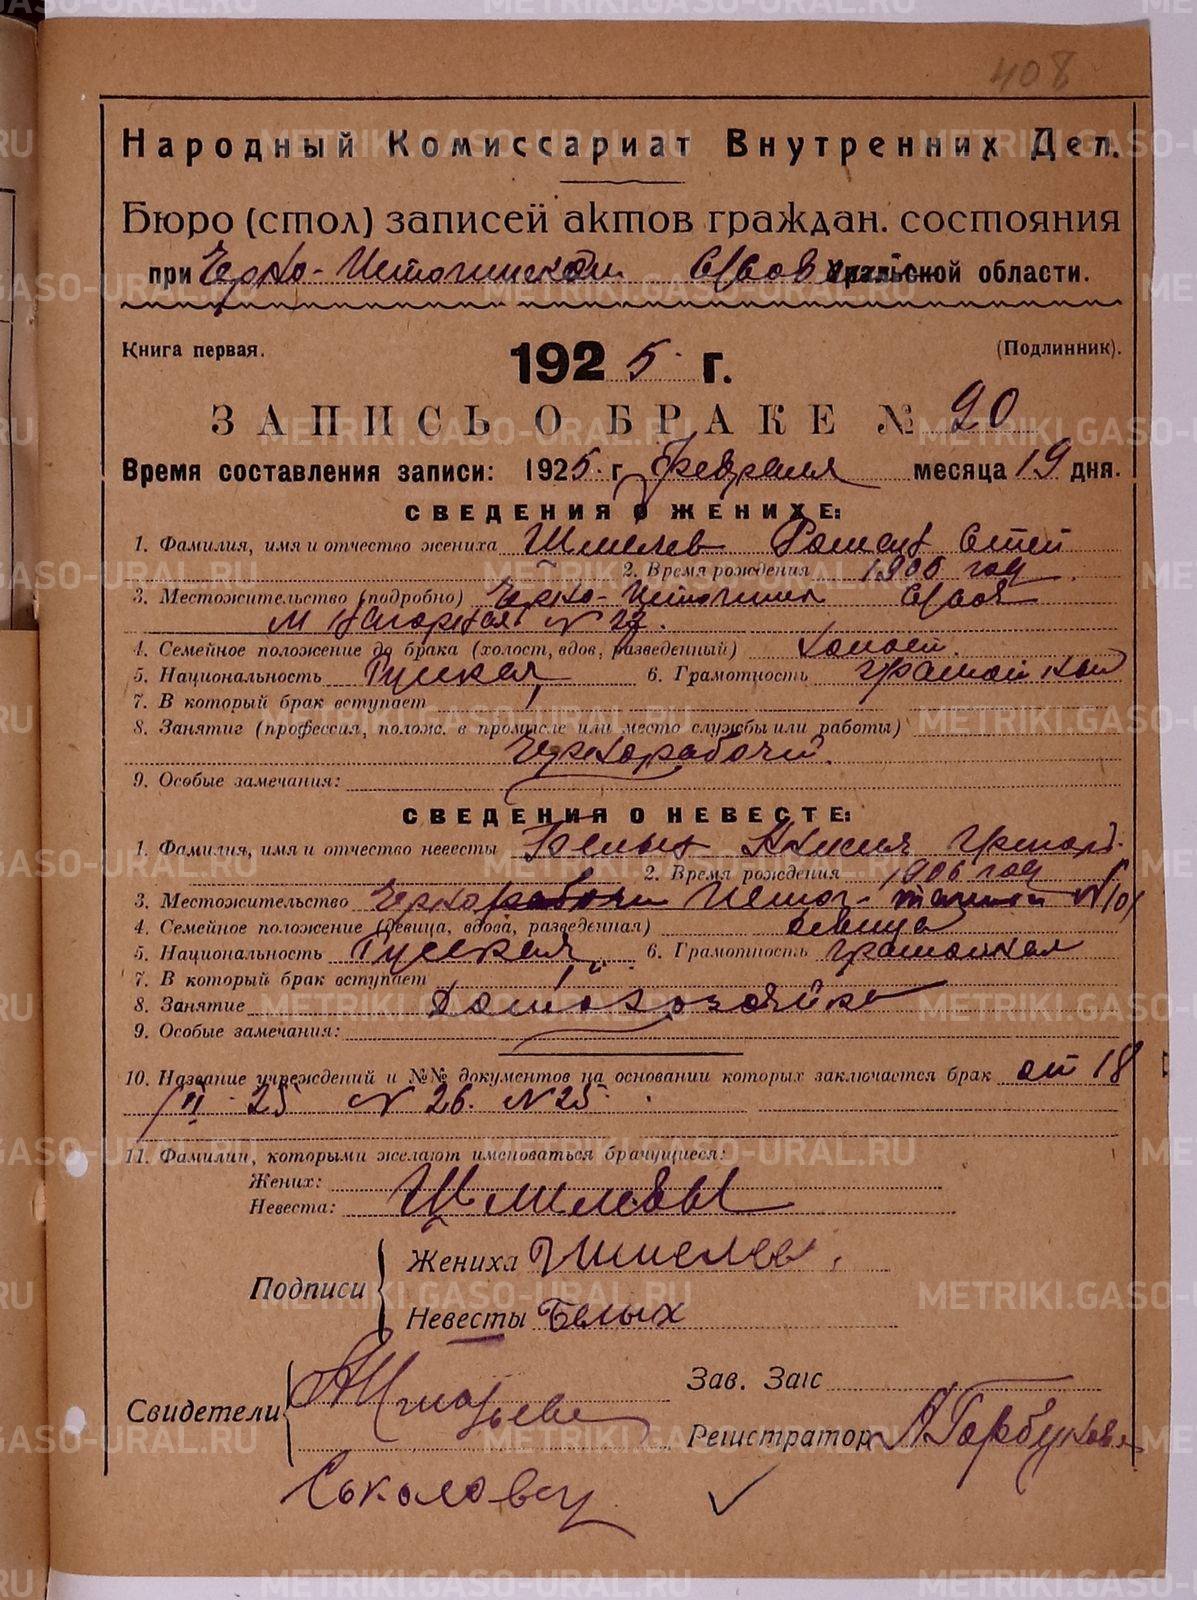 408
Народный Комиссариат Внутренних Дел.
Бюро (стол) записей актов граждан. состояния
при Черно-Источинском Уральской области.
Книга первая. 1925 г. (Подлинник).
ЗАПИСЬ О БРАКЕ № 20
Время составления записи: 1925 г. Февраля месяца 19 дня.
СВЕДЕНИЯ О ЖЕНИХЕ:
1. Фамилия, имя и отчество жениха Шмелев Роман Степ
2. Время рождения 1906 год
3. Местожительство (подробно) Черно-Источинск
Нагорная № 22.
4. Семейное положение до брака (холост, вдов, разведенный) Холост.
5. Национальность Русская 6. Грамотность грамотный
7. В который брак вступает 1
8. Занятие (профессия, полож. в промысле или место службы или работы)
Чернорабочий.
9. Особые замечания:
СВЕДЕНИЯ О НЕВЕСТЕ:
1. Фамилия, имя и отчество невесты Белых
2. Время рождения 1906 год
3. Местожительство Чернорабочи Источ-
4. Семейное положение (девица, вдова, разведенная) девица
5. Национальность Русская 6. Грамотность грамотная
7. В который брак вступает 1
8. Занятие Домохозяйка
9. Особые замечания:
10. Название учреждений и №№ документов на основании которых заключается брак от 18
/II-25 № 26. № 25.
11. Фамилии, которыми желают именоваться брачущиеся:
Жених:
Невеста: Шмелевы
Подписи Жениха Шмелев.
Невесты Белых
Свидетели Зав. Загс
Регистратор А Горбунов
METRIKI.GASO-URAL.RU